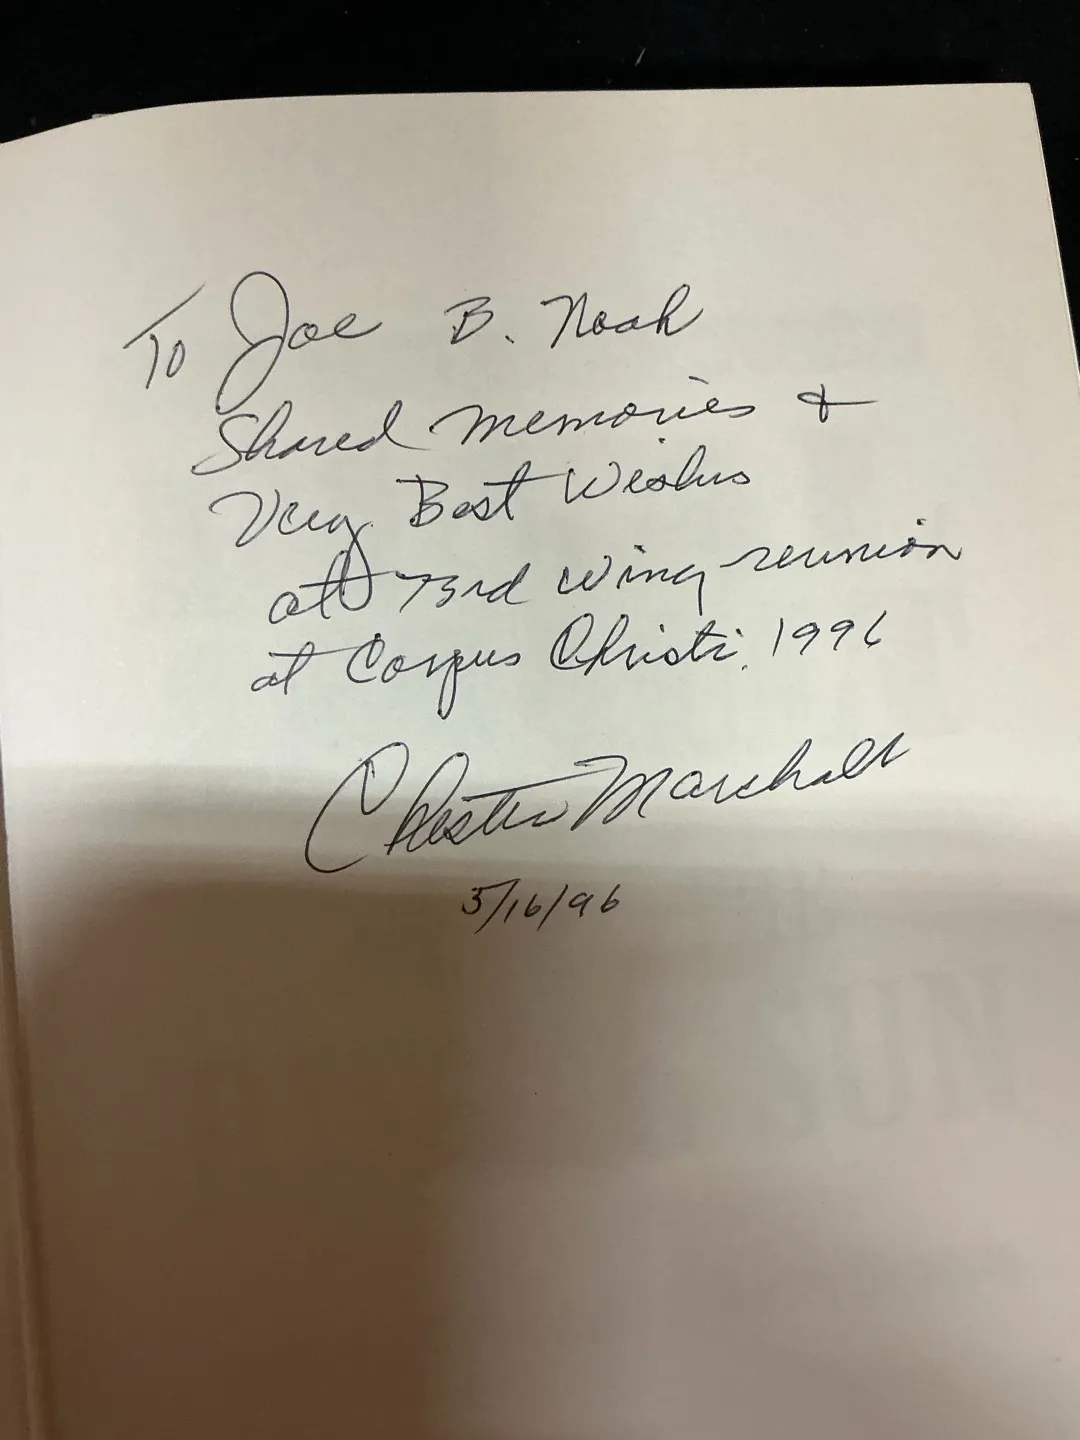 To Joe B. Noah
Shared Memories &
Very Best Wishes
at 73rd Wing reunion
at Corpus Christi, 1996
Chester Marshall
5/16/96
SUN